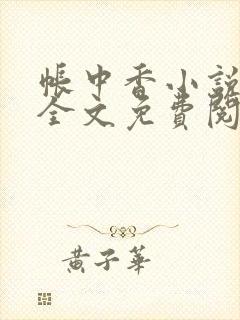 帳中香小說
全文免費閱
黃子華